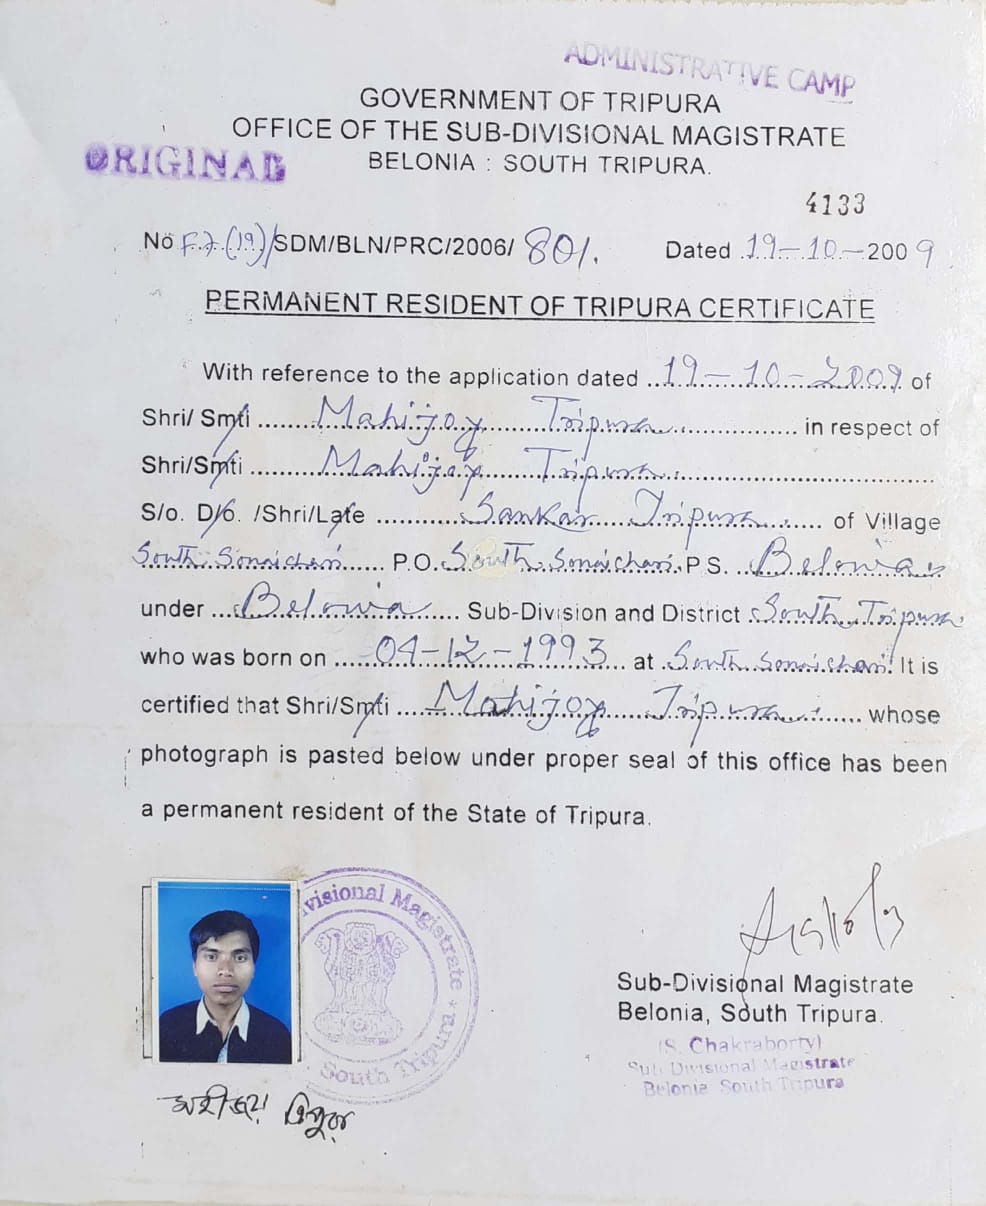 ADMINISTRATIVE CAMP
GOVERNMENT OF TRIPURA
OFFICE OF THE SUB-DIVISIONAL MAGISTRATE
ORIGINAL
BELONIA : SOUTH TRIPURA.
4133
No F.7(19)/SDM/BLN/PRC/2006/ 801. Dated 19-10-2009
PERMANENT RESIDENT OF TRIPURA CERTIFICATE
With reference to the application dated 19-10-2009 of
Shri/ Smti Mahijoy Tripura in respect of
Shri/Smti Mahijoy Tripura
S/o. D/o. /Shri/Late Sankar Tripura of Village
South Sonaichari P.O. South Sonaichari P.S. Belonia
under Belonia Sub-Division and District South Tripura
who was born on 04-12-1993 at South Sonaichari It is
certified that Shri/Smti Mahijoy Tripura whose
photograph is pasted below under proper seal of this office has been
a permanent resident of the State of Tripura.
visional Magistrate
South Tripura
Sub-Divisional Magistrate
Belonia, South Tripura.
(S. Chakraborty)
Sub Divisional Magistrate
Belonia South Tripura
মহীজয় ত্রিপুরা